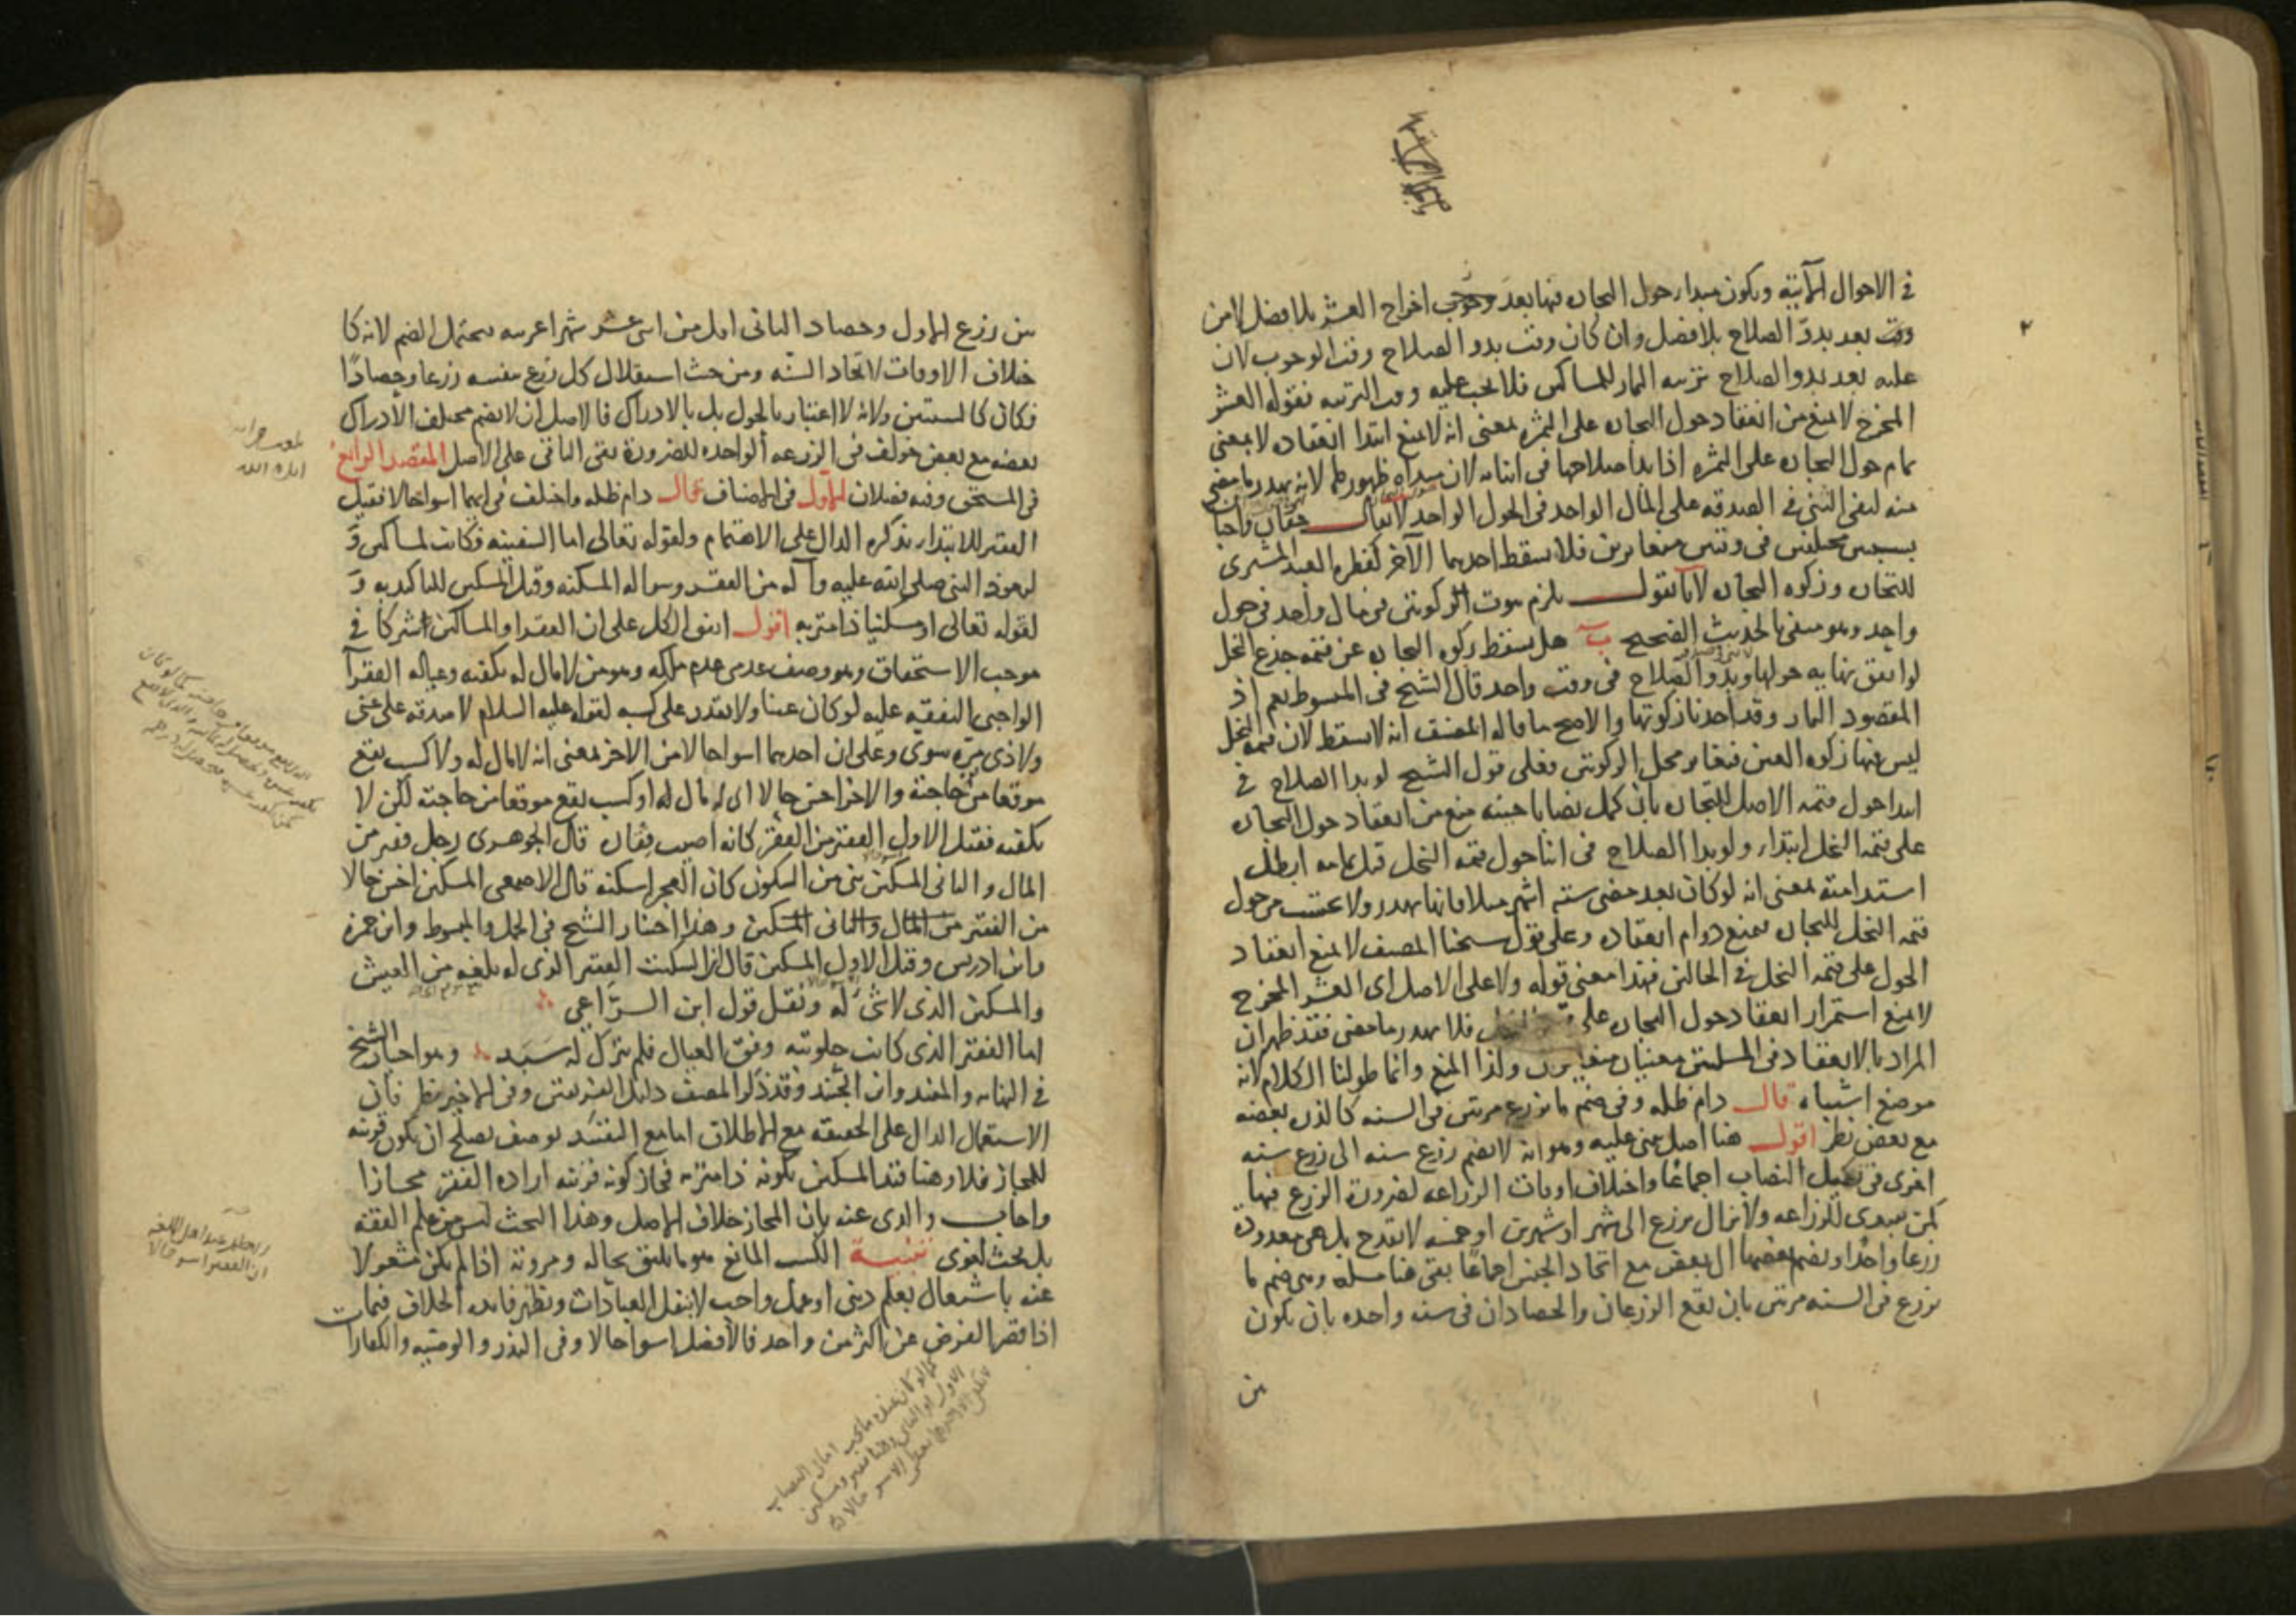 في الاحوال الآتية ويكون مبدا حول التجارة فيها بعد وجوب اخراج العشر بلا فصل لا من
وقت بعد بدو الصلاح بلا فصل وان كان وقت بدو الصلاح وقت الوجوب لان
عليه بعد بدو الصلاح تربيه الثمار للمساكين فلا يجب عليه وقت التربيه فقوله العشر
المخرج لا يمنع من انعقاد حول التجاره على الثمره بمعنى انه لا يمنع ابتدا انعقاده لا بمعنى
تمام حول التجاره على الثمره اذا بدا صلاحها في اثنائه لان مبداه ظهورها لانه يهدر ما مضى
منه لنفي الثني في الصدقه على المال الواحد في الحول الواحد لا يقال حقان واجبان
بسببين مختلفين في وقتين متغايرين فلا يسقط احدهما الآخر كفطره العبد المشترى
للتجاره وزكوه التجاره لانا نقول يلزم ثبوت الزكوتين في مال واحد في حول
واحد وهو منفي بالحديث الصحيح ب هل يسقط زكوه التجاره عن قيمه جذع النخل
لو اتفق نهايه حولها وبدو الصلاح في وقت واحد قال الشيخ في المبسوط نعم اذ
المقصود الثمار وقد اخذنا زكوتها والاصح ما قاله المصنف انه لا يسقط لان قيمه النخل
ليس فيها زكوه العين فتغاير محل الزكوتين فعلى قول الشيخ لو بدا الصلاح في
ابتدا حول قيمه الاصل للتجاره بان كمل نصابا حينه منع من انعقاد حول التجاره
على قيمه النخل ابتداء ولو بدا الصلاح في اثنا حول قيمه النخل قبل تمامه ابطل
استدامته بمعنى انه لو كان بعد مضي سته اشهر مثلا فانها تهدر ولا يحتسب من حول
قيمه النخل للتجاره فمنع دوام انعقاده وعلى قول شيخنا المصنف لا يمنع انعقاد
الحول على قيمه النخل في الحالين فهذا معنى قوله ولا على الاصل اى العشر المخرج
لا يمنع استمرار انعقاد حول التجاره على النخل فلا يهدر ما مضى فقد ظهر ان
المراد بالانعقاد في المسئلتين معنيان متغايران ولذا المنع وانما طولنا الكلام لانه
موضع اشتباه قال دام ظله وفي ضم ما يزرع مرتين في السنه كالذره بعضه
مع بعض نظر اقول هنا اصل يبنى عليه وهو انه لا يضم زرع سنه الى زرع سنه
اخرى في تكميل النصاب اجماعا واختلاف اوقات الزراعه لضروره الزرع فيها
كمن يبتدى للزراعه ولا يزال يزرع الى شهر او شهرين او خمسه لا يقدح بل هي معدوده
زرعا واحدا ويضم بعضها الى بعض مع اتحاد الجنس اجماعا بقى هنا مسله وهي ضم ما
يزرع في السنه مرتين بان يقع الزرعان والحصادان في سنه واحده بان يكون
بين
بين زرع الاول وحصاد الثاني اقل من اثني عشر شهرا عربيه يحتمل الضم لانه كا
ختلاف الاوقات لاتحاد السنه ومن حيث استقلال كل زرع بنفسه زرعا وحصادا
فكان كالسنتين ولانه لا اعتبار بالحول بل بالادراك فالاصل ان لا يضم مختلف الادراك
بعضه مع بعض خولف في الزرعه الواحده للضرورة بقى الباقى على الاصل المقصد الرابع
في المستحق وفيه فصلان الاول في الاصناف قال دام ظله واختلف في ايهما اسوا حالا فقيل
الفقير للابتداء بذكره الدال على الاهتمام ولقوله تعالى اما السفينه فكانت لمساكين و
لتعوذ النبي صلى الله عليه وآله من الفقر وسواله المسكنه وقيل المسكين للتاكيد به و
لقوله تعالى او مسكينا ذا متربه اقول اتفق الكل على ان الفقرا والمساكين اشتركا في
موجب الاستحقاق وهو وصف عدمي عدم ملكه وهو من لا مال له يكفيه وعياله الفقرآ
الواجبى النفقه عليه لو كان غنيا ولا يقدر على كسبه لقوله عليه السلام لا صدقه على غنى
ولا ذى مرة سوى وعلى ان احدهما اسوا حالا من الاخر بمعنى انه لا مال له ولا كسب يقع
موقعا من حاجته والاخر احسن حالا اى له مال او كسب يقع موقعا من حاجته لكن لا
يكفيه فقيل الاول الفقير من الفقر كانه اصيب فقاره قال الجوهرى رجل فقير من
المال والثانى المسكين بنى من السكون كان العجز اسكنه قال الاصمعى المسكين احسن حالا
من الفقير من المال والثانى المسكين وهذا اختيار الشيخ في الجمل والمبسوط وابن حمزه
وابن ادريس وقيل الاول المسكين قال ابن السكيت الفقير الذى له بلغه من العيش
والمسكين الذى لا شئ له ونقل قول ابن الراعي
اما الفقير الذى كانت حلوبته وفق العيال فلم يترك له سبد وهو اختيار الشيخ
في النهايه والمفيد وابن الجنيد وقد ذكر المصنف دليل الفريقين وفي الاخير نظر فان
الاستعمال الدال على الحقيقه مع الاطلاق اما مع التقييد بوصف يصلح ان يكون قرينه
للمجاز فلا وهنا قيد المسكين بكونه ذا متربه فجاز كونه قرينه اراده الفقير مجازا
واجاب والدى عنه بان المجاز خلاف الاصل وهذا البحث ليس من علم الفقه
بل بحث لغوى تنبيه الكسب المانع هو ما يليق بحاله ومروته اذا لم يكن مشغولا
عنه باشتغال بعلم دينى او عمل واجب لا بنفل العبادات ويظهر فايده الخلاف فيما
اذا قصر الفرض عن اكثر من واحد فالافضل اسوا حالا وفى النذر والوصيه والكفارات